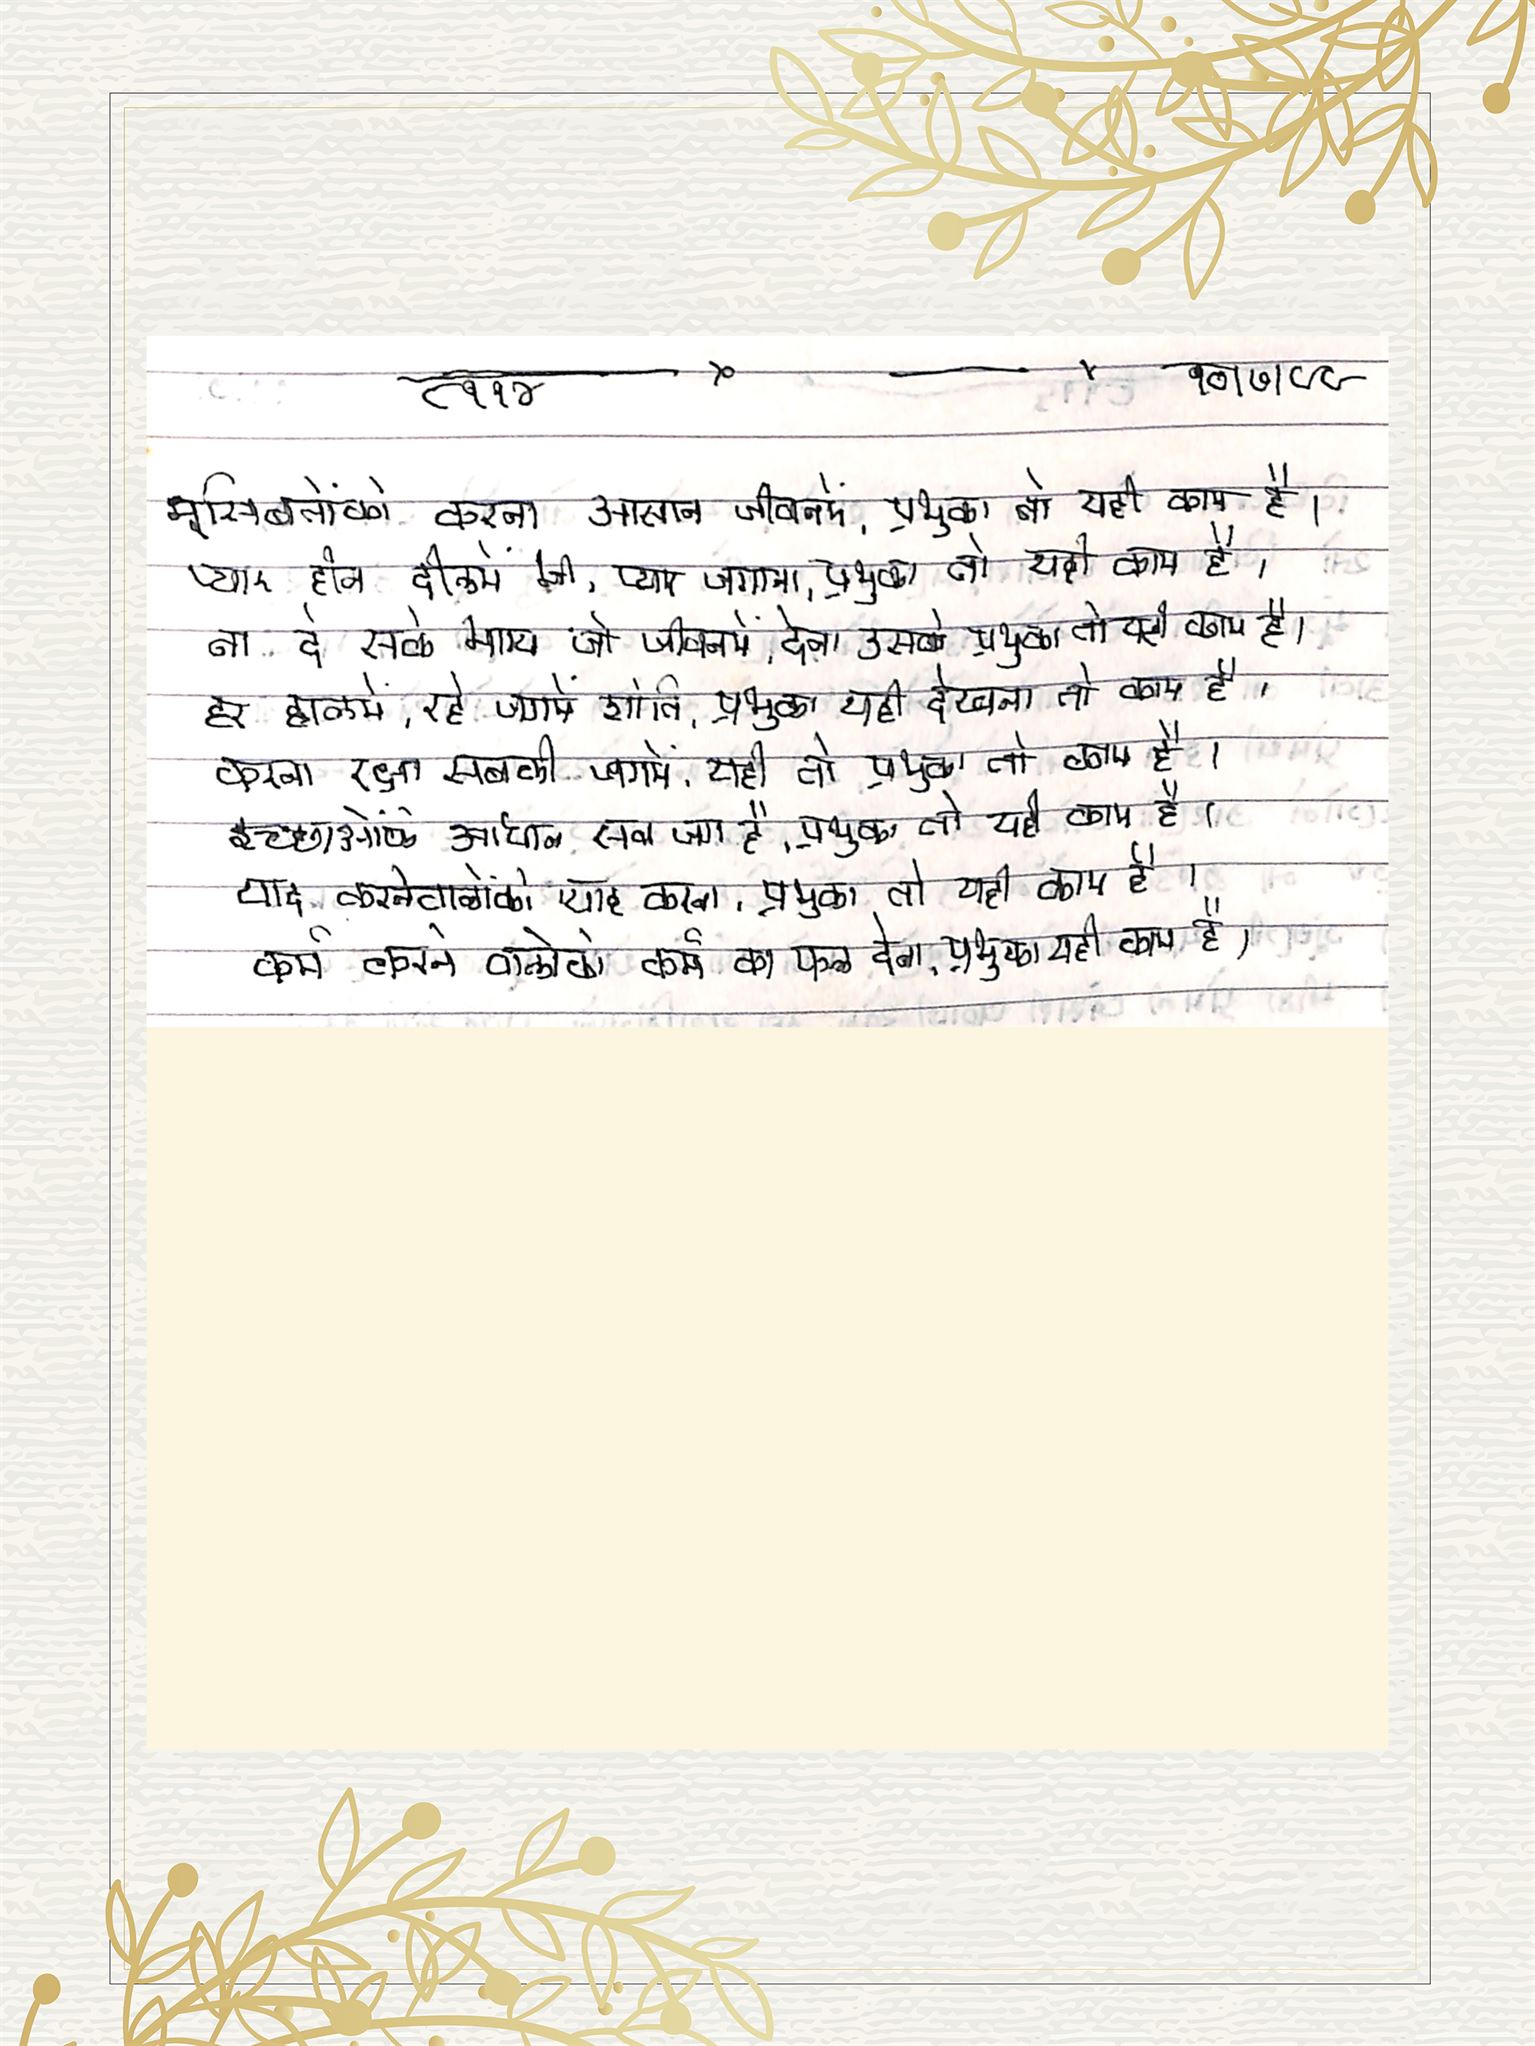 ८११४ १०/७/८८
मूसिबतोंको करना आसान जीवनमें, प्रभुका तो यही काम है।
प्यार हीन दीलमें भी, प्यार जगाना, प्रभुका तो यही काम है।
ना दे सके भाग्य जो जीवनमें, देना उसके प्रभुका तो यही काम है।
हर हालमें, रहे जगमें शांति, प्रभुका यही देखना तो काम है।
करना रक्षा सबकी जगमें, यही तो प्रभुका तो काम है।
इच्छाओंके आधीन सब जग है, प्रभुका तो यही काम है।
याद करनेवालोंको याद करना, प्रभुका तो यही काम है।
कर्म करने वालोको कर्म का फल देना, प्रभुका यही काम है।